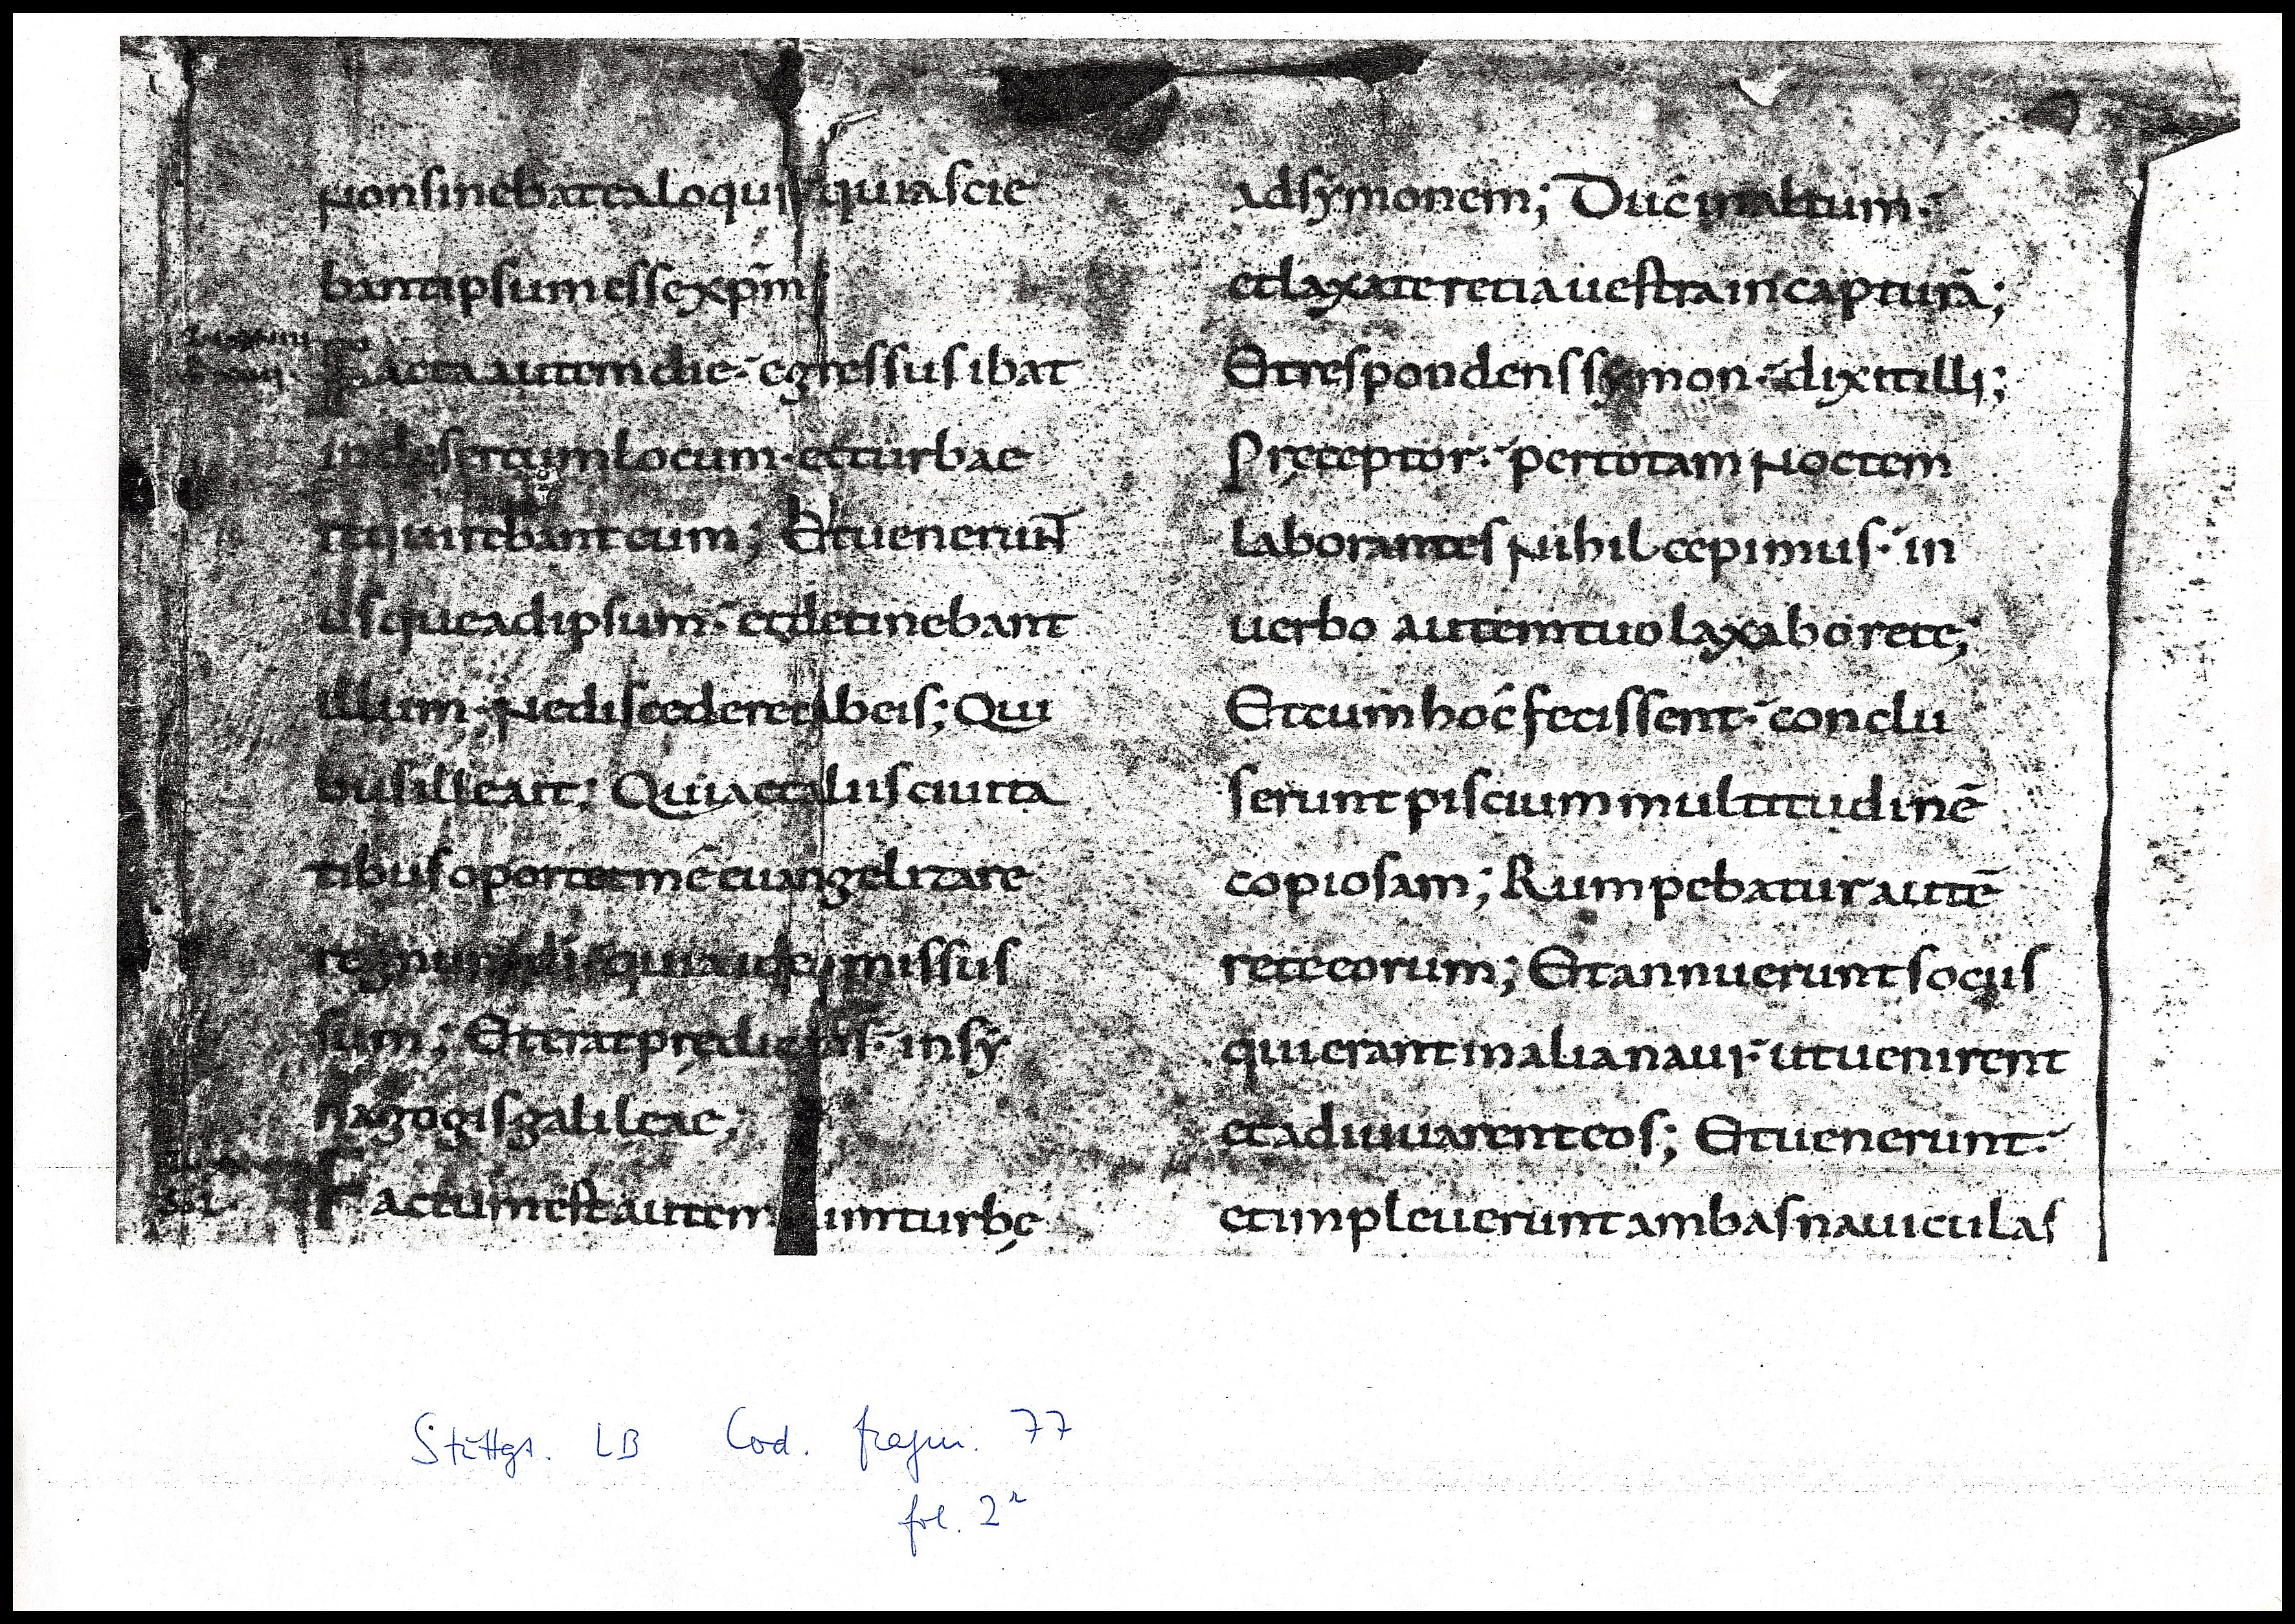 Non sinebat ea loqui quia scie
bant ipsum esse xp̄m
Facta autem die· egressus ibat
in desertum locum· et turbae
requirebant eum; Et uenerunt
usque ad ipsum· et detinebant
illum· Ne discederet ab eis; Qui
bus ille ait; Quia et aliis ciuita
tibus oportet me euangelizare
regnum di· quia ideo missus
sum; Et erat prędicans· in sy
nagogis galileae;
Factum est autem cum turbę
ad symonem; Duc in altum·
et laxate retia uestra in capturā;
Et respondens symon· dixit illi;
Pręceptor· per totam Noctem
laborantes Nihil cepimus· in
uerbo autem tuo laxabo rete;
Et cum hoc fecissent· conclu
serunt piscium multitudinē
copiosam; Rumpebatur autē
rete eorum; Et annuerunt sociis
qui erant in alia naui· ut uenirent
et adiuuarent eos; Et uenerunt·
et impleuerunt ambas nauiculas
Stuttga. LB Cod. fragm. 77
fol. 2r